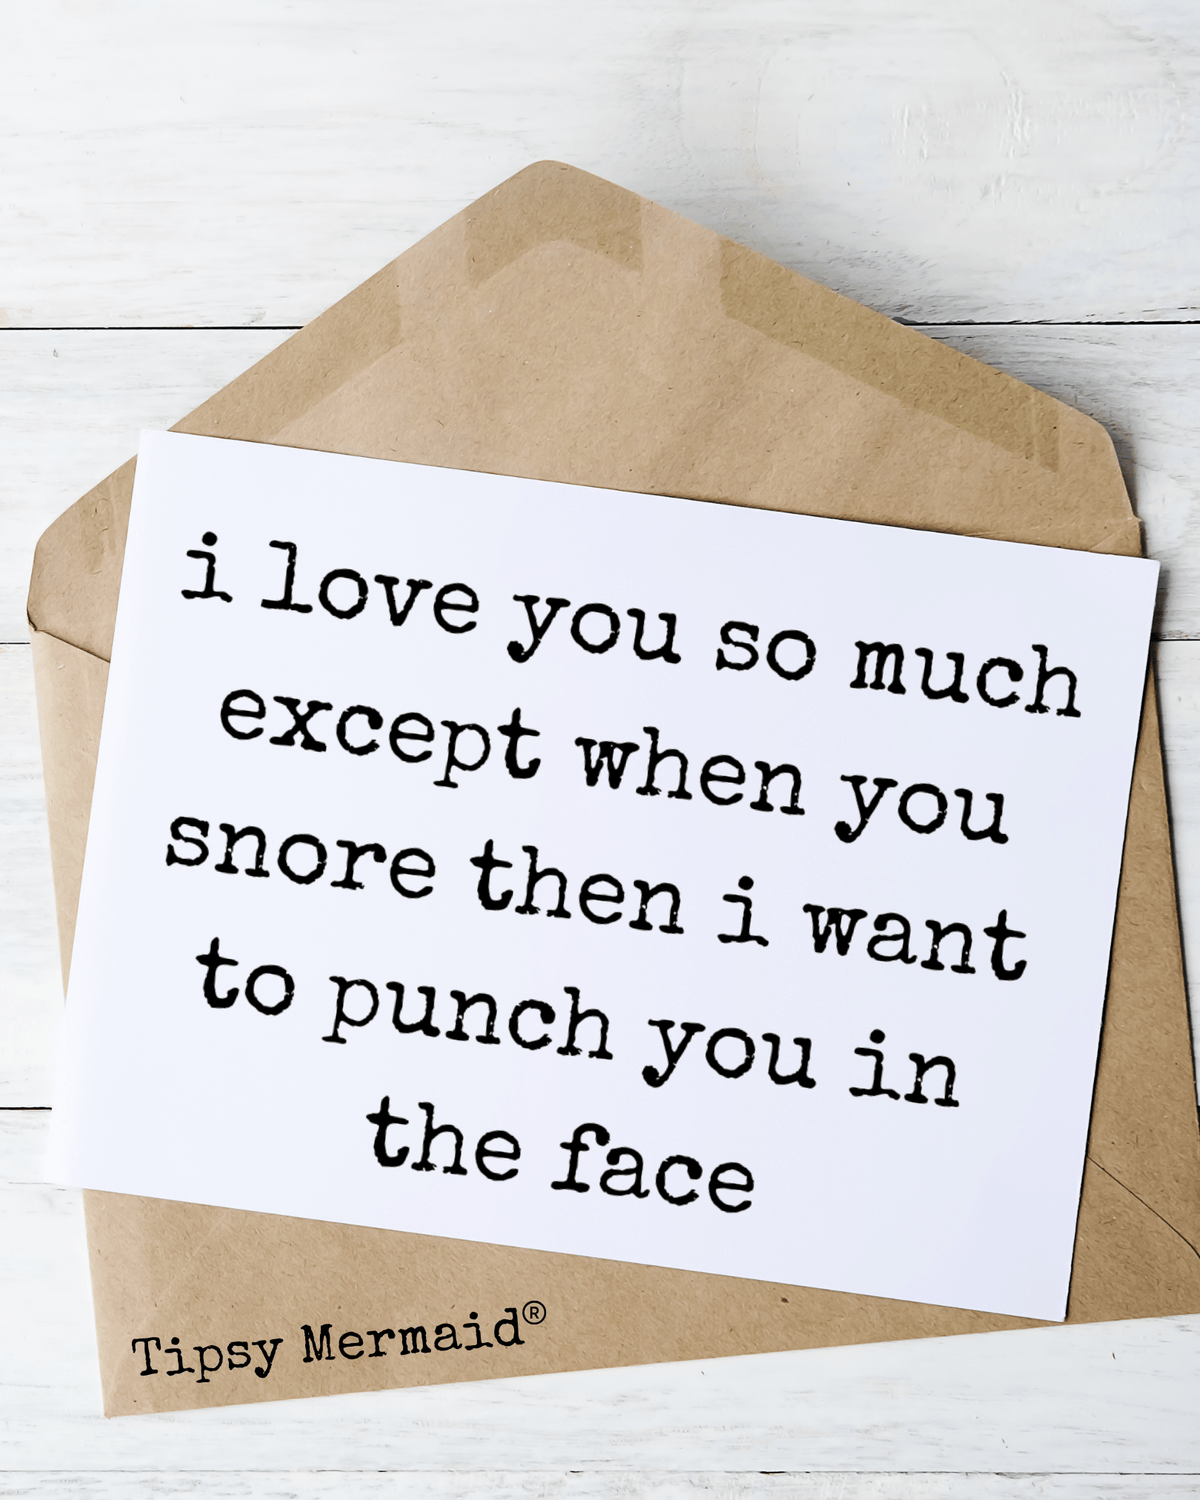 i love you so much
except when you
snore then i want
to punch you in
the face
Tipsy Mermaid®